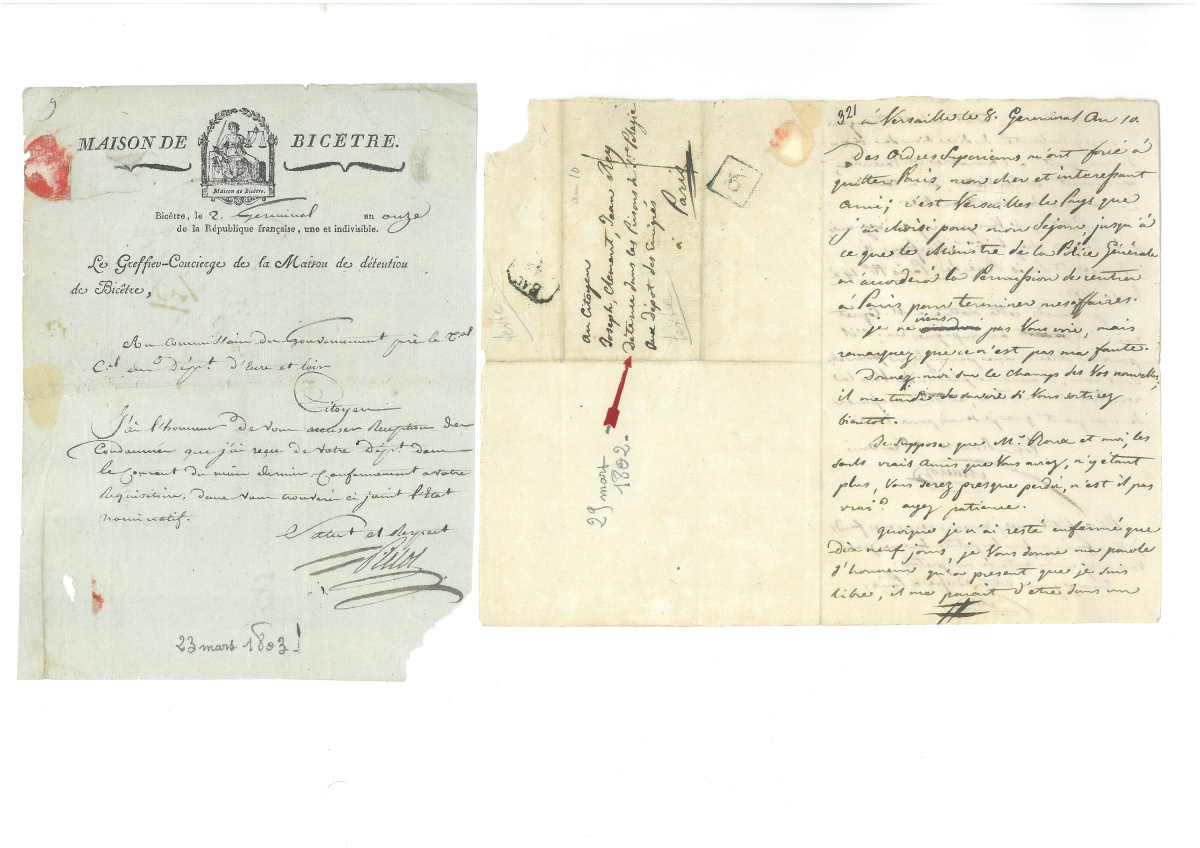 9
MAISON DE BICÊTRE.
Maison de Bicêtre.
Bicêtre, le 2. Germinal an onze
de la République française, une et indivisible.
Le Greffier-Concierge de la Maison de détention
de Bicêtre,
Au Commissaire du Gouvernement près le
Cel du Dépt. d'Eure et loir
Citoyen
J'ai l'honneur de vous accuser Reception des
Condamnés que j'ai reçus de votre Dépt. dans
le Courant du mois dernier Conformement a votre
Requisitoire, dont vous trouverez ci joint l'Etat
nominatif.
Salut et Respect
23 mars 1803
au Citoyen
Joseph, Clement Jean Rey
Détenue dans les Prisons de Ste Pelagie
au depot des Emigrés
à
Paris
an 10
29 mars
1802
321
à Versaille le 8. Germinal An 10.
Des Ordres Superieurs m'ont forcé à
quitter Paris, mon cher et interessant
Ami; c'est Versailles le Pays que
j'ai choisi pour mon Sejour, jusqu'à
ce que le Ministre de la Police Générale
m'accordera la Permission de rentrer
à Paris pour terminer mes affaires.
je ne viens pas Vous voir, mais
remarquez que ce n'est pas ma faute.
Donnez moi sur le champs des Vos nouvelles,
il me tarde de savoir si Vous sortirez
bientot.
Je suppose que Mr. Roux et moi, les
seuls vrais Amis que Vous aviez, n'y étant
plus, Vous serez presque perdu, n'est il pas
vrai? ayez patience.
quoique je n'ai resté enfermé que
dix neuf jours, je Vous donne ma parole
d'honneur qu'a present que je suis
libre, il me parait d'être dans un